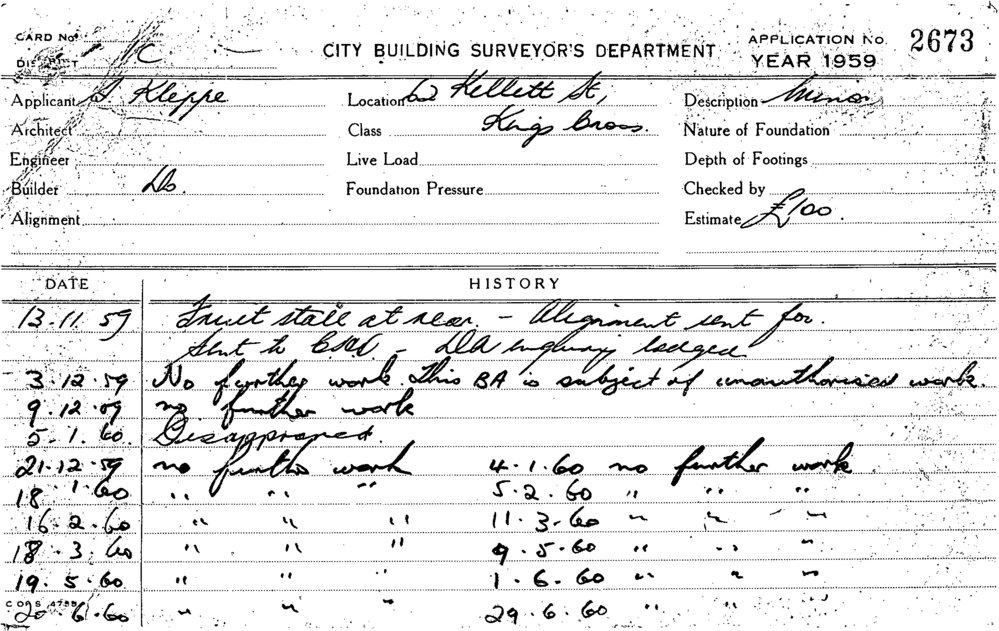 CARD No.
DISTRICT C
CITY BUILDING SURVEYOR'S DEPARTMENT
APPLICATION No. 2673
YEAR 1959
Applicant Kleppe
Location 62 Kellett St,
Description Minor
Architect
Class Kings Cross.
Nature of Foundation
Engineer
Live Load
Depth of Footings
Builder Do.
Foundation Pressure
Checked by
Alignment
Estimate £100.
DATE HISTORY
13.11.59 Fruit stall at rear. - Alignment sent for.
Sent to - DA enquiry lodged
3.12.59 No further work. This BA is subject of unauthorised work.
9.12.59 no further work
5.1.60. Disapproved.
21.12.59 no further work 4.1.60 no further work
18.1.60 " " " 5.2.60 " " "
16.2.60 " " " 11.3.60 " " "
18.3.60 " " " 9.5.60 " " "
19.5.60 " " " 1.6.60 " " "
20.6.60 " " " 29.6.60 " " "